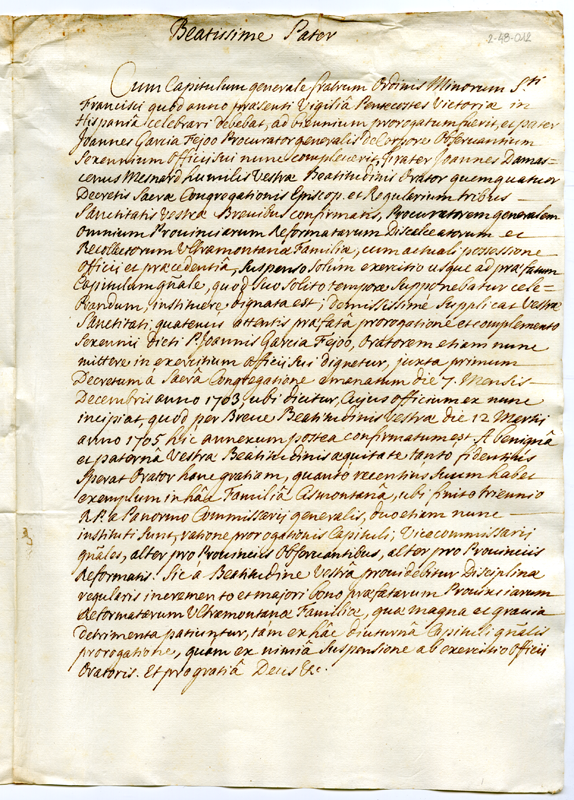 2-48-012
Beatissime Pater
Cum Capitulum generale fratrum Ordinis Minorum S.ti
Francisci quod anno præsenti Vigiliâ Pentecostes Victoriæ in
Hispaniâ celebrari debebat, ad biennium prorogatum fuerit, et pater
Joannes Garcia Fejoo Procurator generalis de Corpore Observantium
Sexennium Officii sui nunc compleverit, frater Joannes Damas=
cenus Mesnerd humilis Vestræ Beatitudinis Orator quem quatuor
Decretis Sacræ Congregationis Episcop. et Regularium tribus
Sanctitatis Vestræ Brevibus confirmatis, Procuratorem generalem
omnium Provinciarum Reformatarum Discalceatorum et
Recollectorum Ultramontanæ Familiæ, cum actuali possessione
officii et præcedentia, suspenso solum exercitio usque ad præfatum
Capitulum gñale, quod suo solito tempore supponebatur cele=
brandum, instituere dignata est; demississimè supplicat Vestræ
Sanctitati, quatenus attentis præfatâ prorogatione et complemento
Sexennii dicti P. Joannis Garcia Fejoo, Oratorem etiam nunc
mittere in exercitium officii sui dignetur, juxta primum
Decretum â Sacrâ Congregatione emanatum die 7. Mensis
Decembris anno 1703 ubi dicitur, Cujus officium ex nunc
incipiat, quod per Breve Beatitudinis Vestræ die 12 Martij
anno 1705 hic annexum postea confirmatum est. A benignâ
et paternâ Vestræ Beatitudinis æquitate tantò fidentius
sperat Orator hanc gratiam, quantò recentius suum habet
exemplum in hâc Familiâ Cismontanâ, ubi finito triennio
R.P. a Panormo Commissarij generalis, duo etiam nunc
instituti sunt, ratione prorogationis Capituli, Vicecommissarij
gñales, alter pro Provinciis Observantibus, alter pro Provinciis
Reformatis. Sic â Beatitudine Vestrâ providebitur Disciplinæ
regularis incremento et majori bono præfatarum Provinciarum
Reformatarum Ultramontanæ Familiæ, quæ magna et gravia
detrimenta patiuntur, tàm ex hâc diuturnâ Capituli gñalis
prorogatione, quam ex nimiâ suspensione ab exercitio Officii
Oratoris. Et pro gratiâ Deus &c.